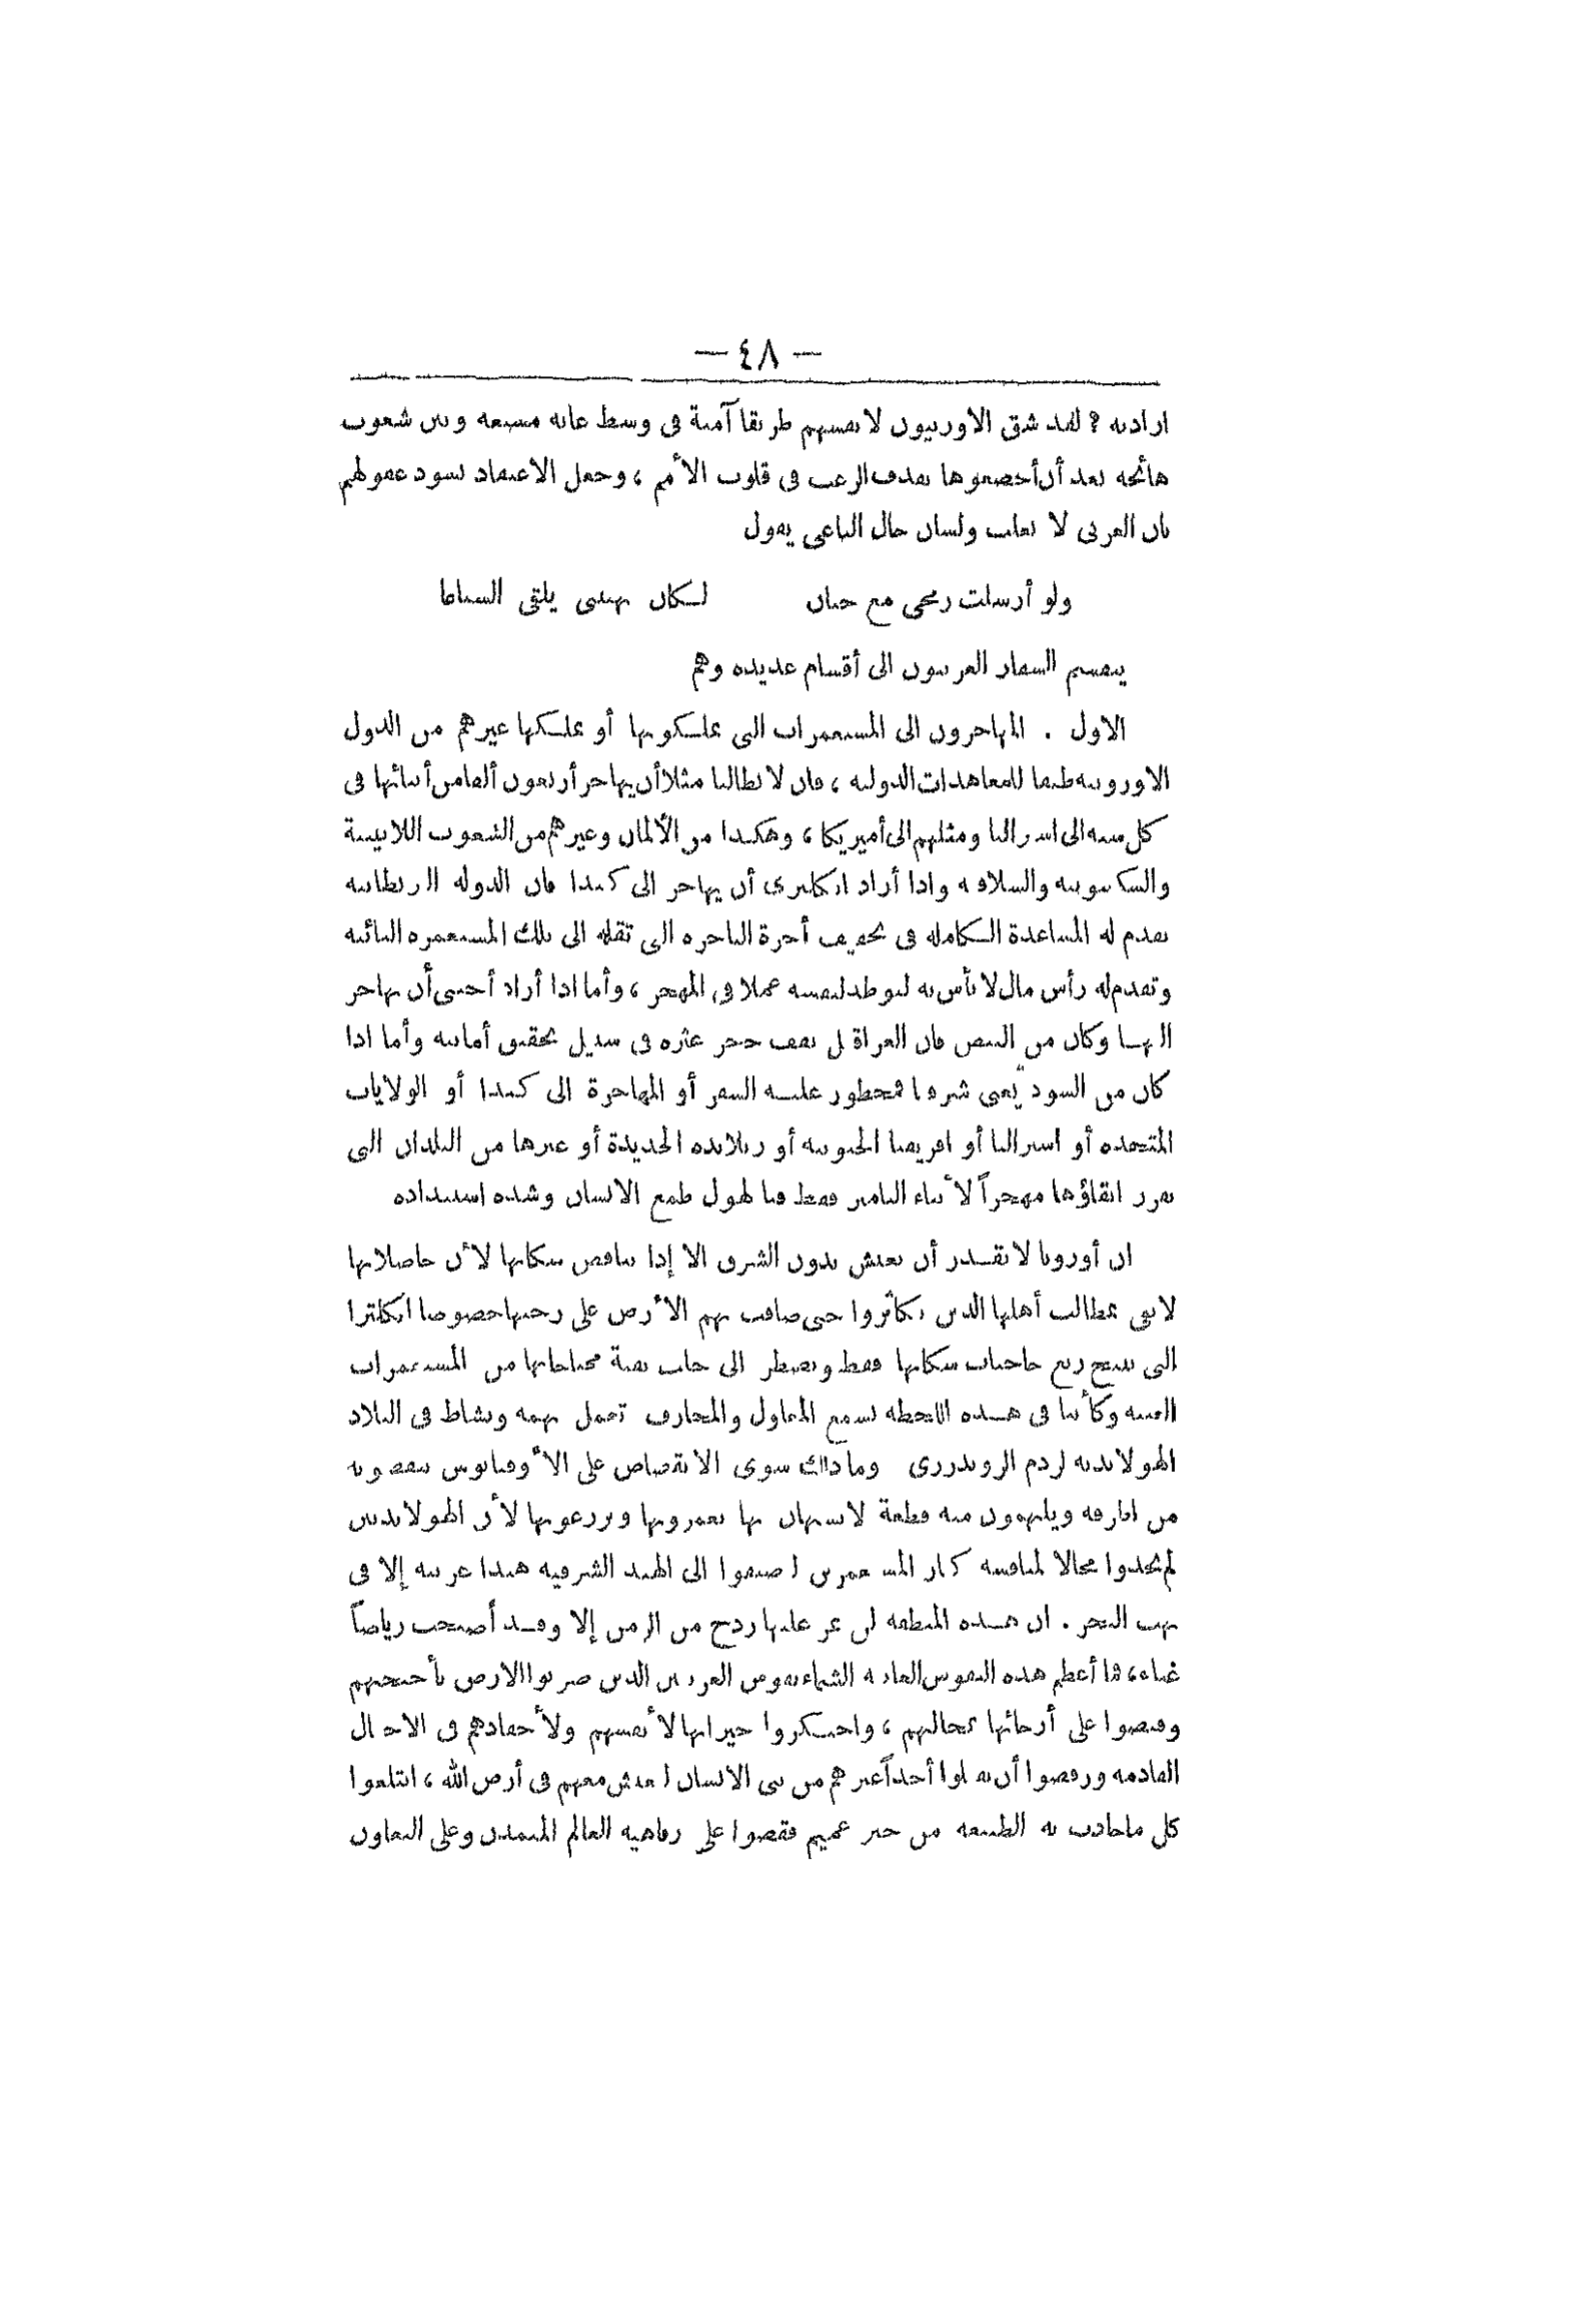 — ٤٨ —
ارادته ؟ لقد شق الاوربيون لانفسهم طريقا آمنة فى وسط غابة مسبعة وبين شعوب
هائجة بعد أن أخضعوها بقذف الرعب فى قلوب الأمم ، وجعل الاعتقاد يسود عقولهم
بان الغربى لا يغلب ولسان حال الباغى يقول
ولو أرسلت رمحى مع جبان لـكان بهيبتى يلقى السباعا
ينقسم السفار الغربيون الى أقسام عديدة وهم
الاول . المهاجرون الى المستعمرات التى يملـكونها أو يملـكها غيرهم من الدول
الاوروبية طبقا للمعاهدات الدولية ، فان لايطاليا مثلا أن يهاجر أربعون ألفا من أبنائها فى
كل سنة الى استراليا ومثلهم الى أميريكا ، وهكذا من الألمان وغيرهم من الشعوب اللاتينية
والسكسونية والسلافية واذا أراد انكليزى أن يهاجر الى كندا فان الدولة البريطانية
تقدم له المساعدة الـكاملة فى تخفيف أجرة الباخرة التى تقله الى تلك المستعمرة النائية
وتقدم له رأس مال لا بأس به ليوطد لنفسه عملا فى المهجر ، وأما اذا أراد أجنبى أن يهاجر
اليهـا وكان من البيض فان العراقيل تقف حجر عثرة فى سبيل تحقيق أمانيه وأما اذا
كان من السود يعنى شرقيا فمحظور عليـه السفر أو المهاجرة الى كندا أو الولايات
المتحدة أو استراليا أو افريقيا الجنوبية أو زيلاندة الجديدة أو غيرها من البلدان التى
تقرر ابقاؤها مهجراً لأبناء التاميز فقط فيا لهول طمع الانسان وشدة استبداده
ان أوروبا لا تقـدر أن تعيش بدون الشرق الا إذا تناقص سكانها لأن حاصلاتها
لا تفى بمطالب أهلها الذين تكاثروا حتى ضاقت بهم الأرض على رحبها خصوصا انكلترا
التى تنتج ربع حاجيات سكانها فقط وتضطر الى جلب بقية محتاجاتها من المستعمرات
الغنية وكأننا فى هـذه اللحظة نسمع المعاول والمجارف تعمل بهمة ونشاط فى البلاد
الهولاندية لردم الرويدرزى وما ذاك سوى الانقضاض على الأوقيانوس ينقصونه
من أطرافه ويلتهمون منه قطعة لا يستهان بها يعمرونها ويزرعونها لأن الهولانديين
لم يجدوا مجالا لمنافسة كبار المستعمرين ليضيفوا الى الهند الشرقية هندا غربية إلا فى
نهب البحر . ان هـذه المنطقة لن يمر عليها ردح من الزمن إلا وقـد أصبحت رياضاً
غناء ، فما أعظم هذه النفوس العاتية الشماء نفوس الغربيين الذين ضربوا الارض بأجنحتهم
وقبضوا على أرجائها بمخالبهم ، واحتـكروا خيراتها لأنفسهم ولأحفادهم فى الاجيال
القادمة ورفضوا أن يقبلوا أحداً غيرهم من بنى الانسان ليعيش معهم فى أرض الله ، ابتلعوا
كل ماجادت به الطبيعة من خير عميم فقضوا على رفاهية العالم المتمدن وعلى التعاون